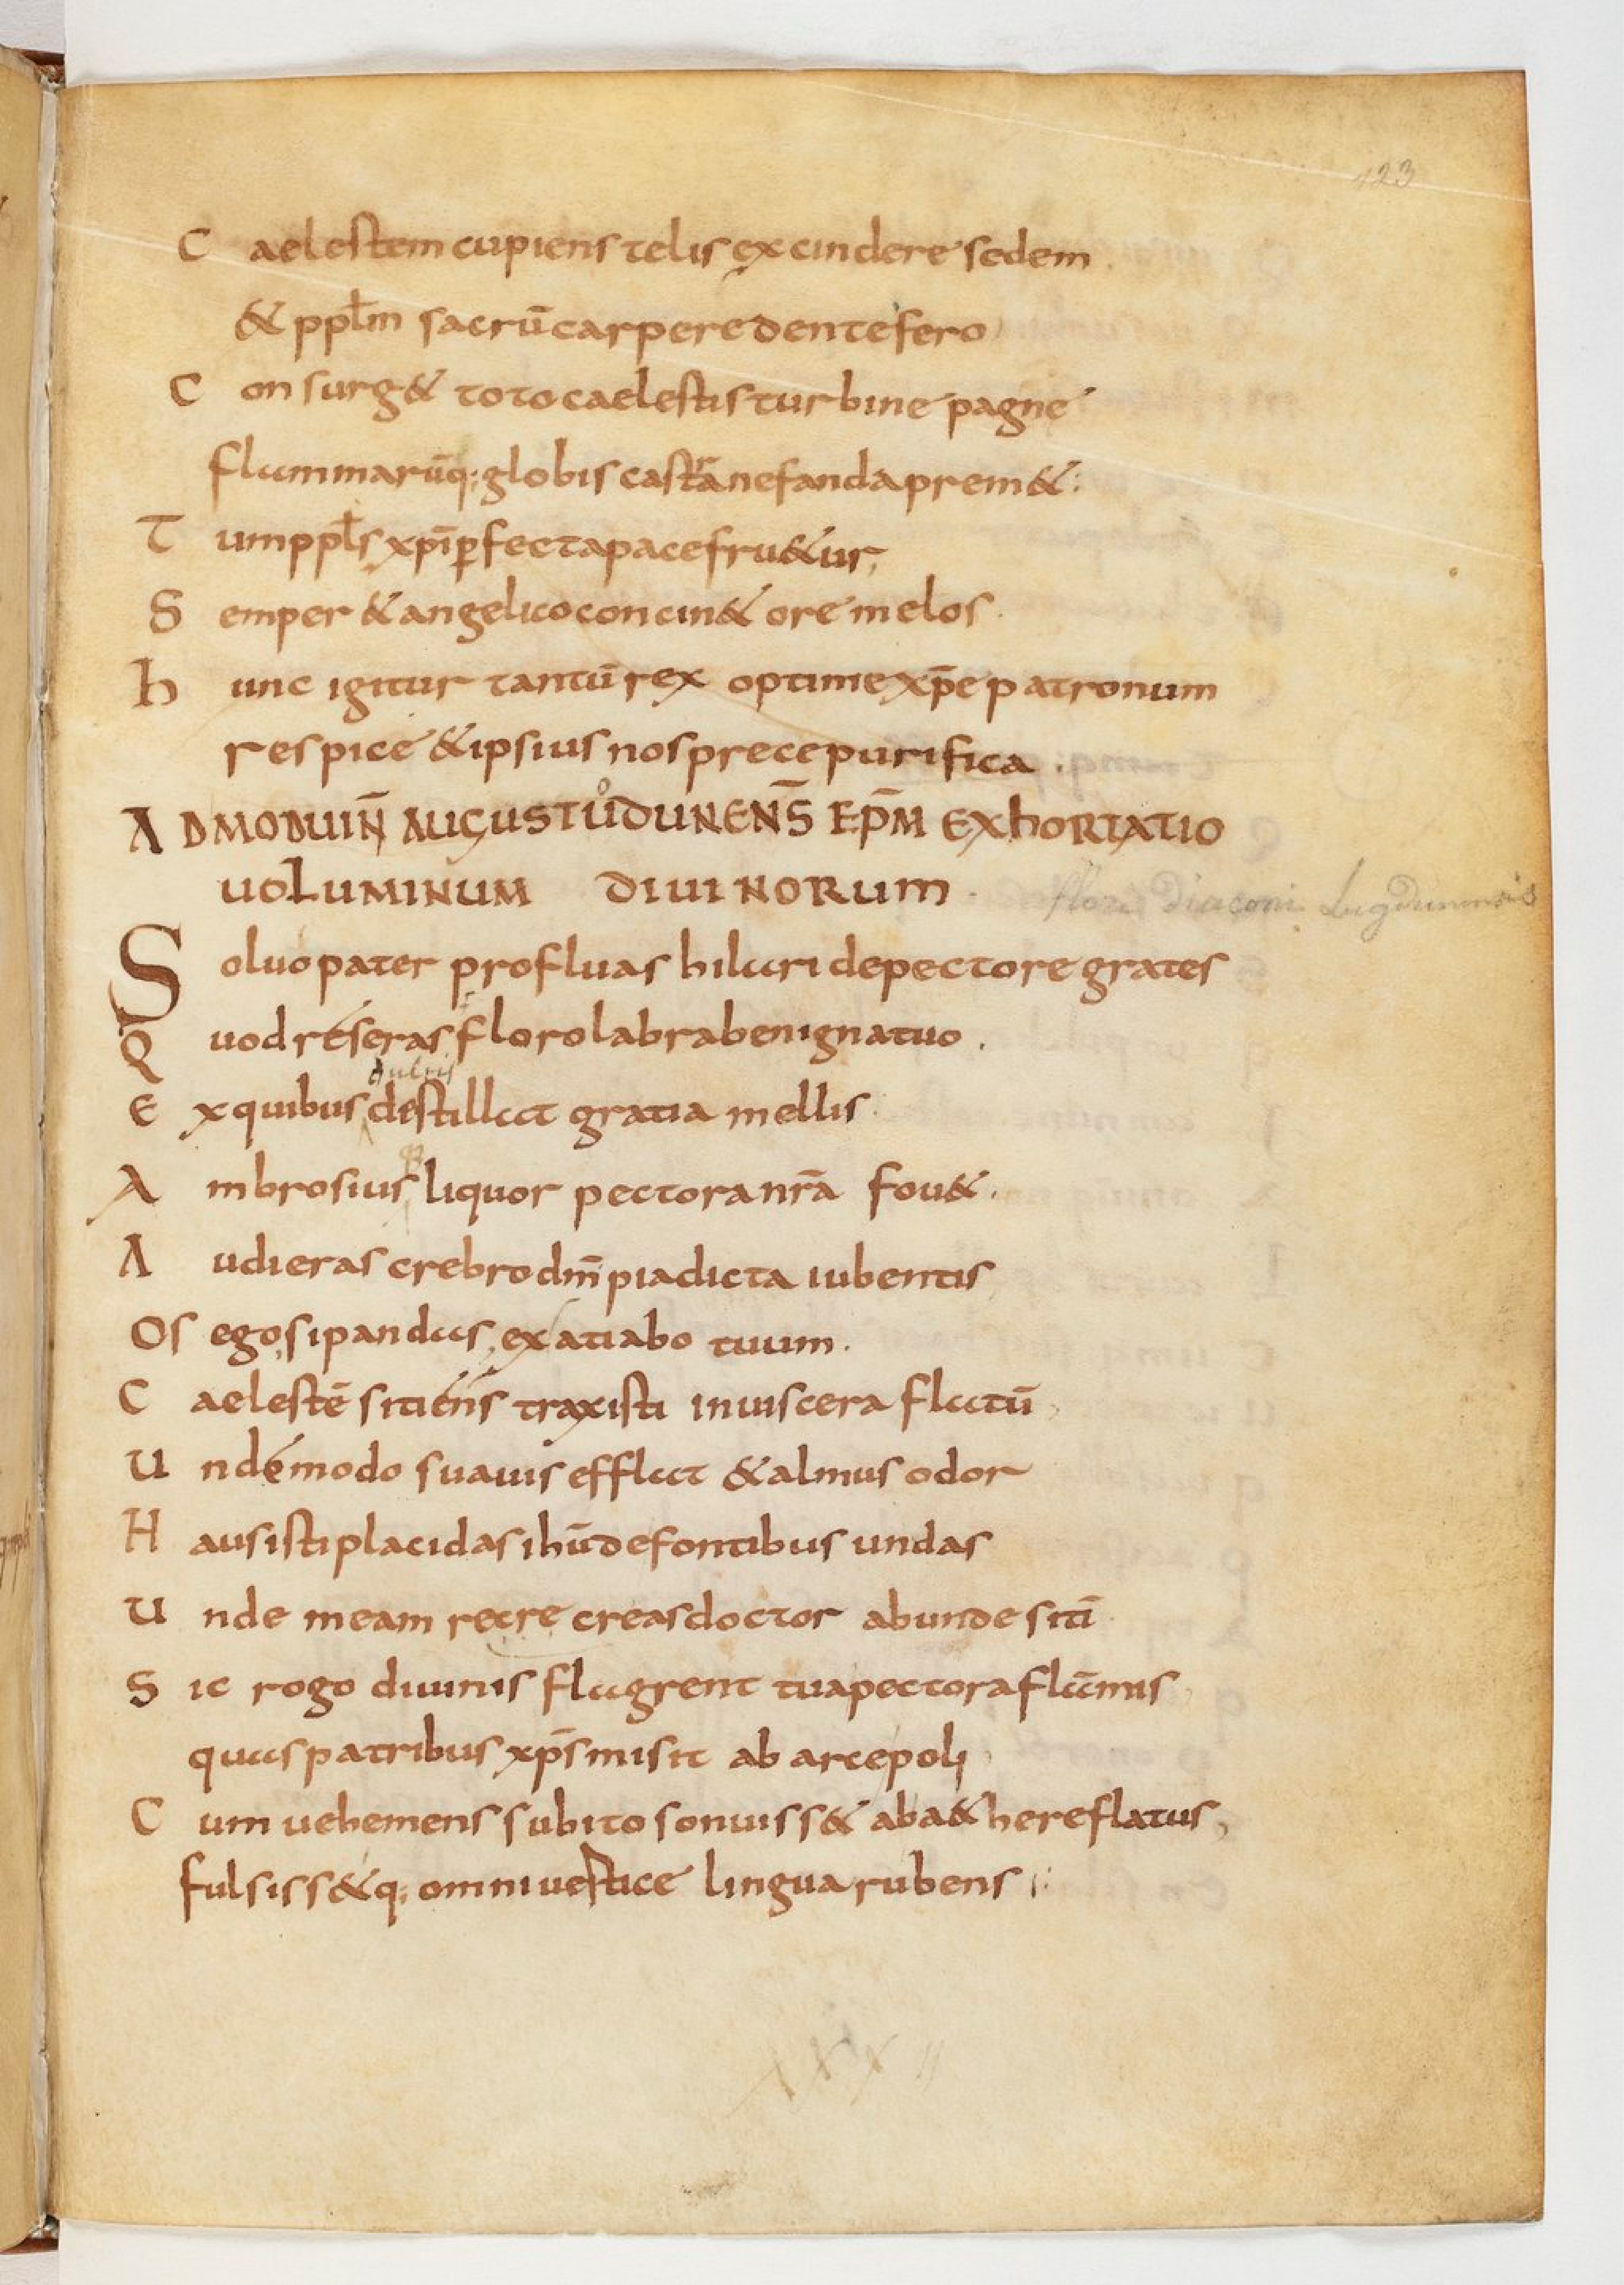 123
Caelestem cupiens telis excindere sedem
& ppłm sacrū carpere dente fero
Consurg& toto caelestis turbine pagne
flammarūq; globis castra nefanda prem&:
Tum ppłs xp̄i ꝑfecta pace fru&ur,
Semper & angelico concin& ore melos.
hunc igitur tantū rex optime xp̄e patronum
respice & ipsius nos prece purifica.
AD MODUIN̄ AUGUSTUDUNENS̄ EP̄M EXhORTATIO
o
UOLUMINUM DIUINORUM.
flori Diaconi Lugdunensis
Soluo pater profluas hilari de pectore grates
Quod reseras floro labra benigna tuo.
dulcis
Ex quibus destillat gratia mellis.
Ambrosius liquor pectora nr̄a fou&.
Audieras crebro dn̄i pia dicta iubentis
Os ego, si pandas, exatiabo tuum.
Caelestē sitiens traxisti in uiscera flatū
Unde modo suauis efflat & almus odor
Hausisti placidas ihū de fontibus undas
Unde meam recre creas doctor abunde sitī
Sic rogo diuinis flagrent tua pectora flām̄is
quas patribus xp̄s misit ab arce poli
Cum uehemens subito sonuiss& ab a&here flatus,
fulsiss&q; omni uertice lingua rubens
XXXII